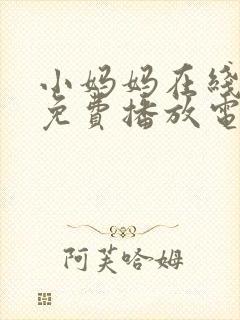 小妈妈在线
免費播放電
阿芙哈姆